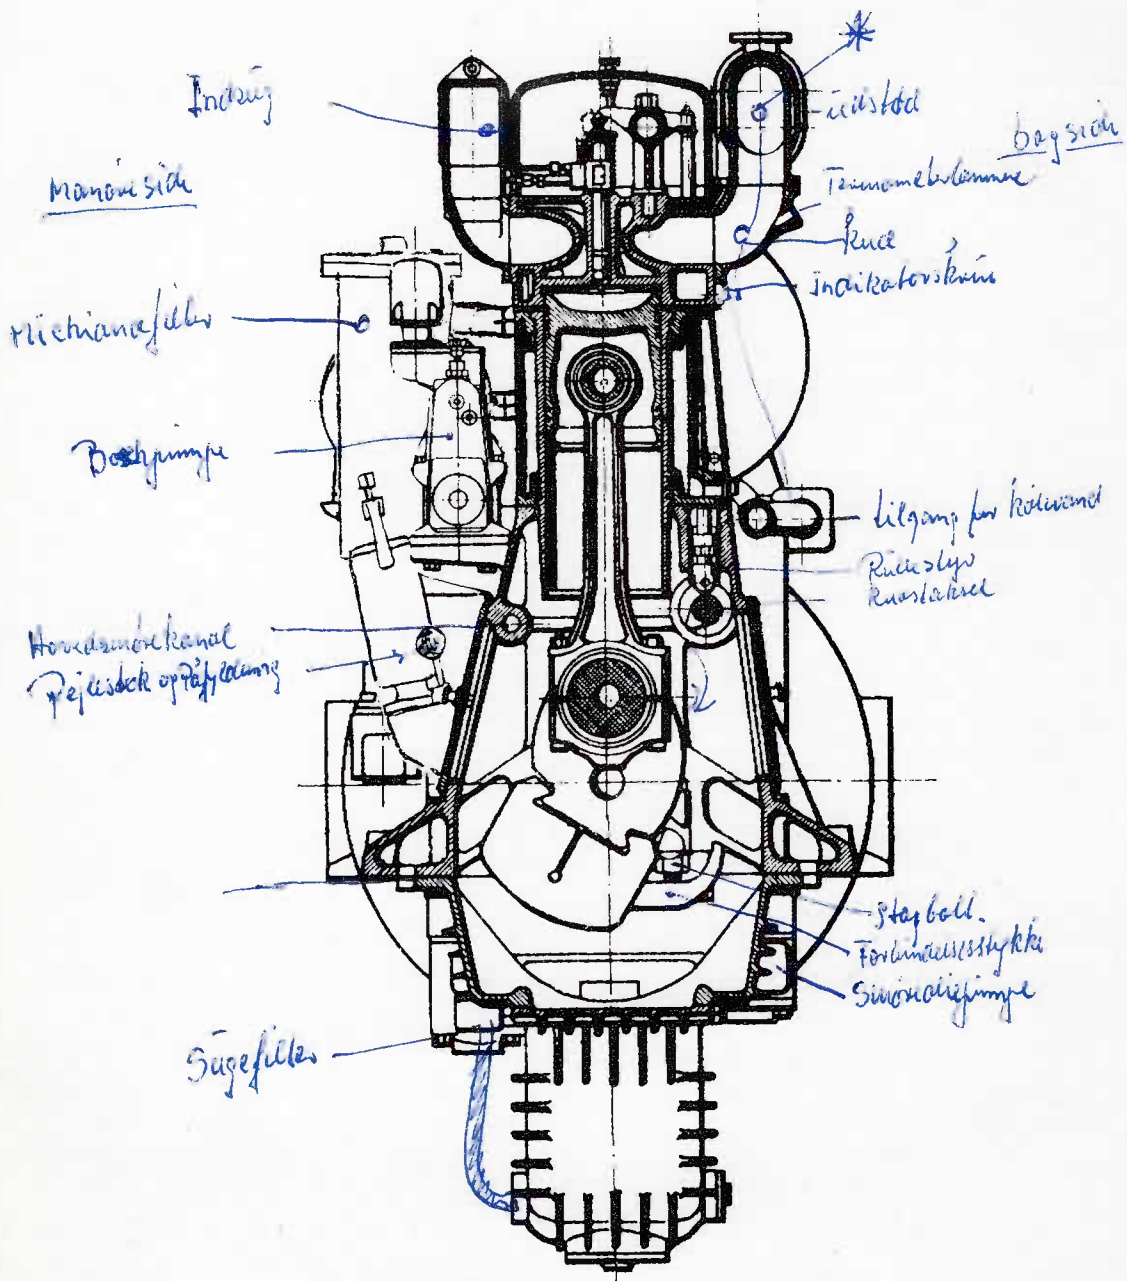 Indsug
Manöveside
Michianafilter
Boschpumpe
Hovedsmörekanal
Pejlestok og Påfyldning
Sugefilter
udstöd
bagside
Termometerlomme
Indikatorskrue
tilgang for kölevand
Stagbolt.
Forbindelsesstykke
Smöreoliepumpe